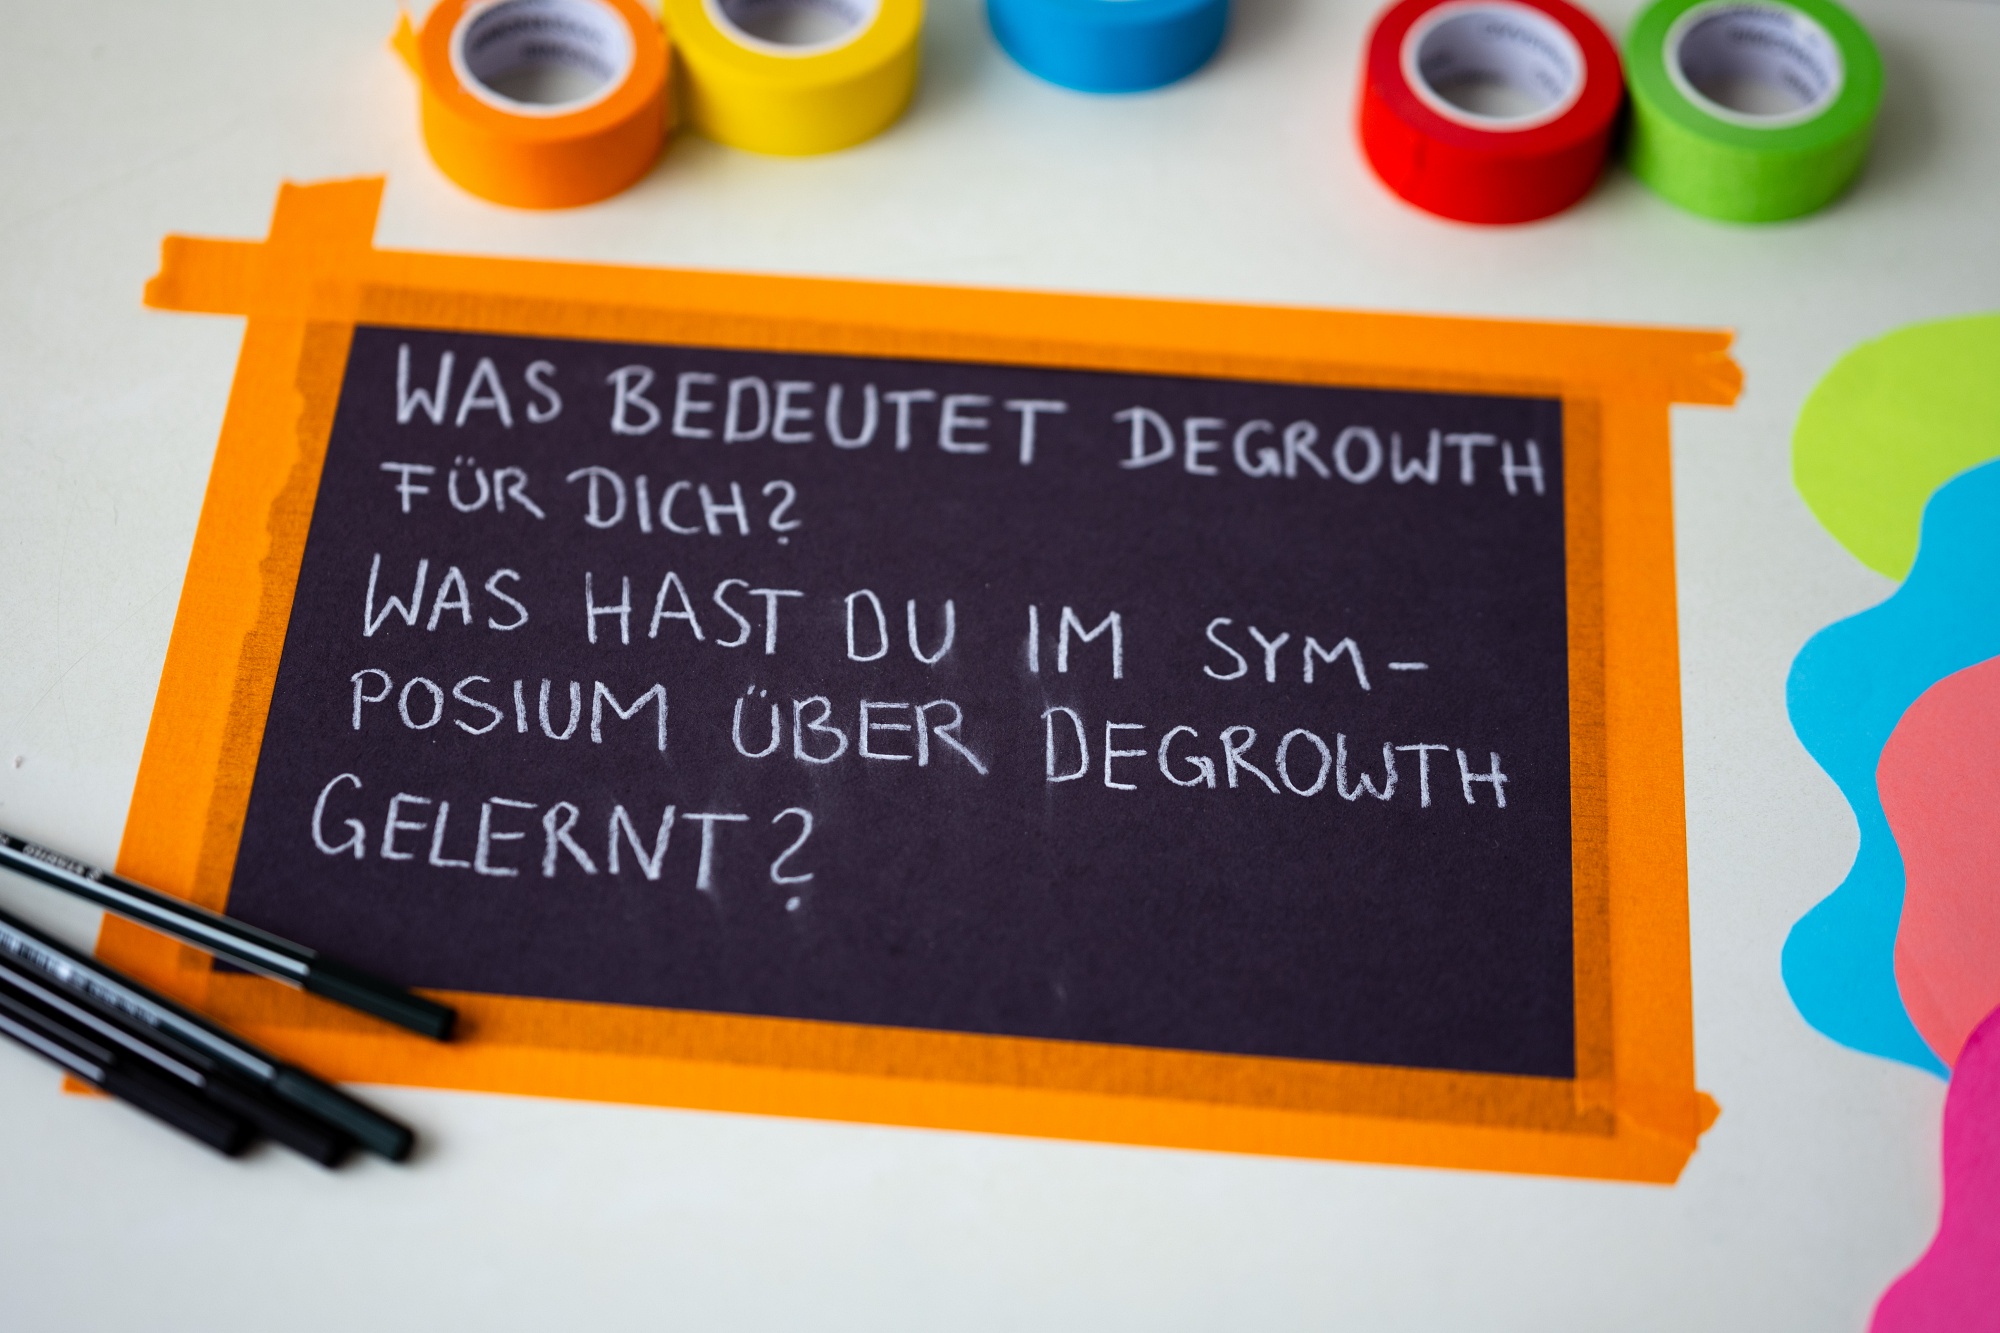 WAS BEDEUTET DEGROWTH
FÜR DICH?
WAS HAST DU IM SYM-
POSIUM ÜBER DEGROWTH
GELERNT?